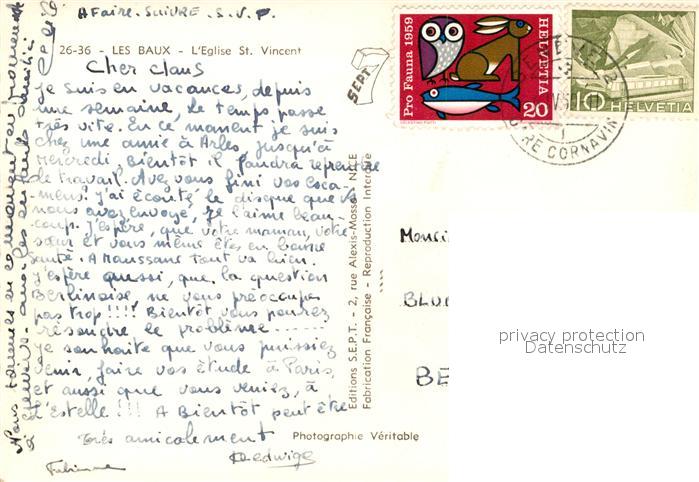 A Faire. SUIVRE. S.V.P.
26-36 - LES BAUX - L'Eglise St. Vincent
Cher Claus
je suis en vacances, depuis
une semaine, le temps passe
très vite. En ce moment je suis
chez une amie à Arles, jusqu'à
Mercredi, Bientôt il faudra reprendre
le travail. Avez vous fini vos exa-
mens. j'ai écouté le disque que
nous avez envoyé, je l'aime beau-
coup. J'éspère, que votre maman, votre
sœur et vous même êtes en bonne
santé. A Maussane tout va bien.
j'espère aussi, que la question
Berlinoise, ne vous préoccupes
pas trop !!!! Bientôt vous pourrez
résoudre le problème ------
je souhaite que vous puissiez
venir, faire vos étude à Paris,
et aussi que vous veniez, à
l'Estelle !!! A Bientôt peut être
très amicalement
Hedwige
Fabienne
Nous sommes en ce moment en
SEPT 7
Editions S.E.P.T. - 2, rue Alexis-Mossa - NICE
Fabrication Française - Reproduction Interdite
Photographie Véritable
Pro Fauna 1959
HELVETIA
20
10
HELVETIA
GENEVE 2
GARE CORNAVIN
1
Monsie
BLU
BE
privacy protection
Datenschutz